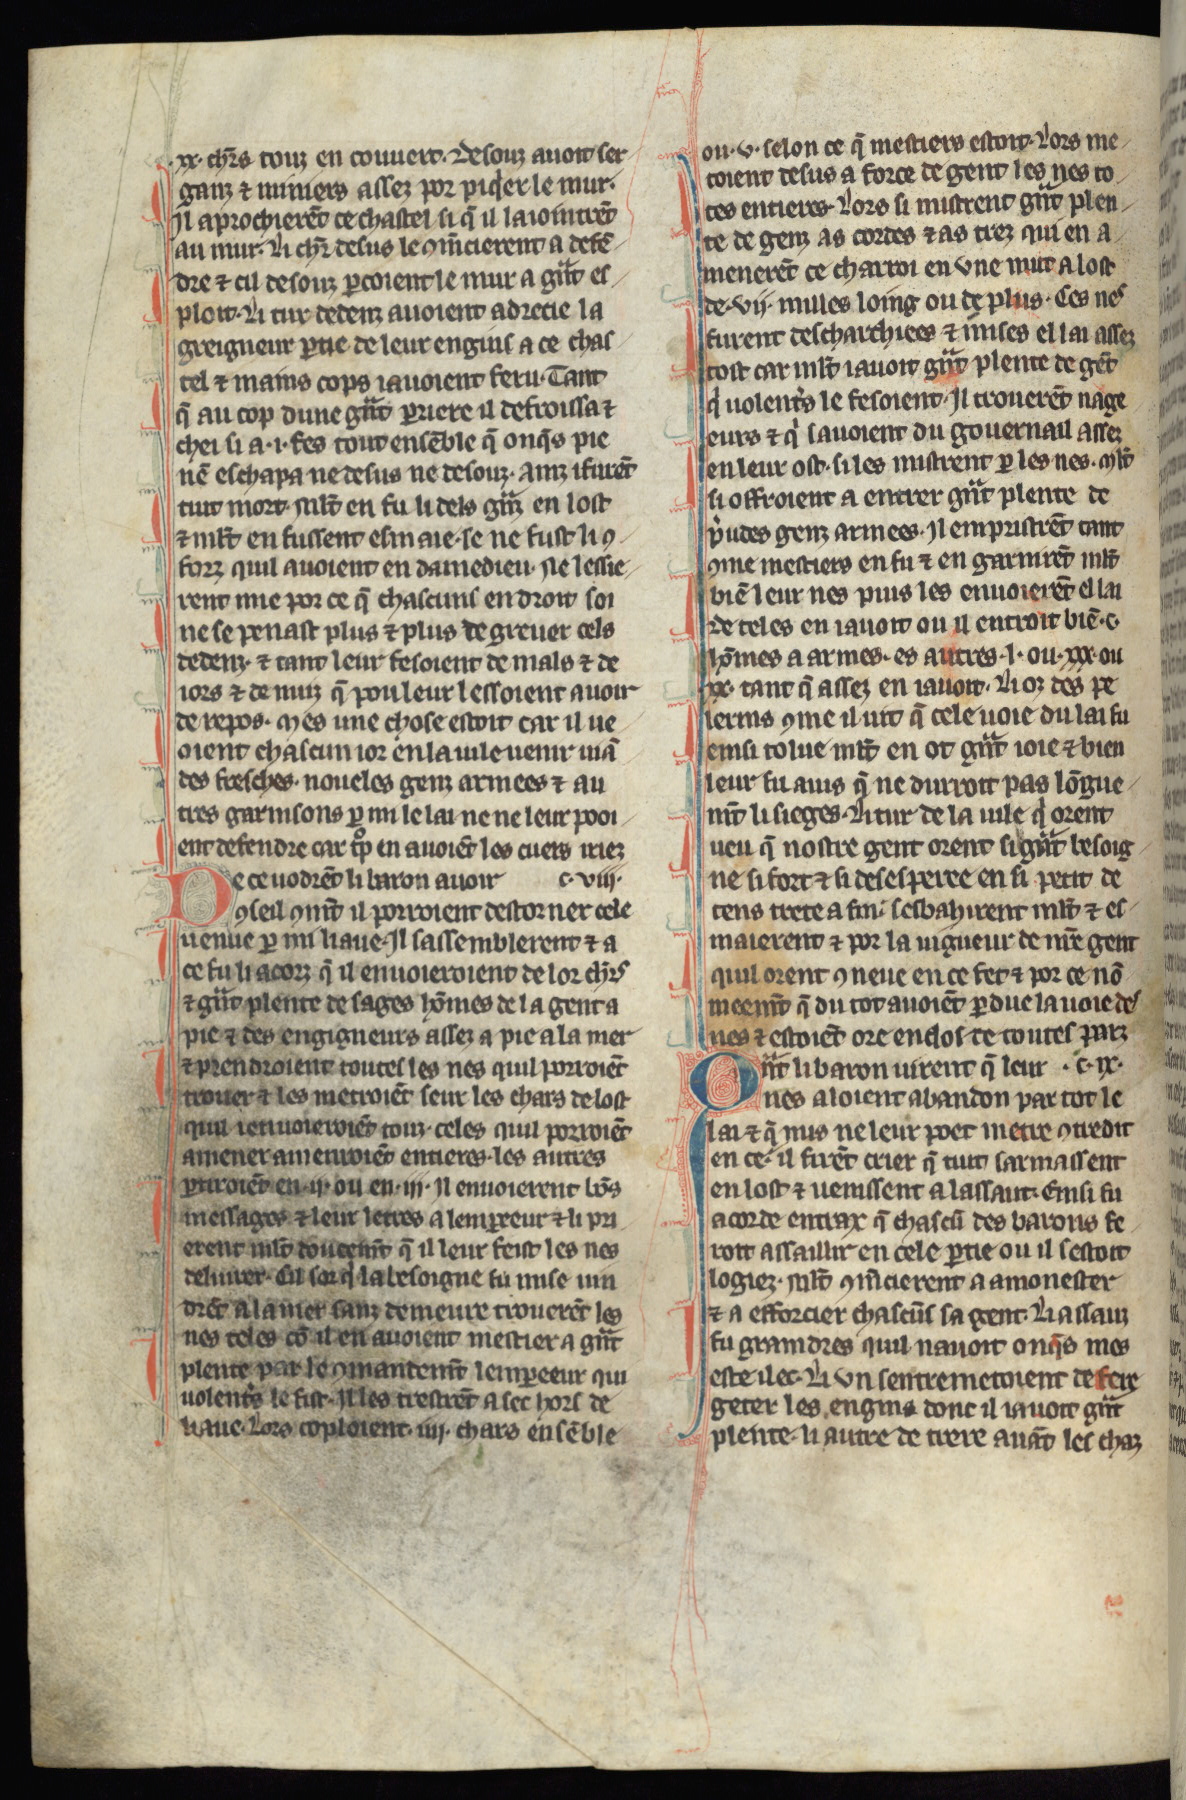 .xx. chrs touz en couvert. Desouz avoit ser
ganz ⁊ miniers assez por piq̃er le mur.
Il aprochierẽt ce chastel si q̃ il laiointrẽt
au mur. Li chr̃ desus le ꝯmẽcierent a defẽ
dre ⁊ cil desouz ꝑcoient le mur a gñt es
ploit. Li tur dedenz avoient adrecie la
greigneur ꝑtie de leur engins a ce chas
tel ⁊ mains cops iavoient feru. Tant
q̃ au cop dune gñt ꝑriere il defroissa ⁊
chei si a .i. fes tout ensẽble q̃ onq̃s pie
nẽ eschapa ne desus ne desouz. Ainz ifurẽt
tuit mort. Mlt en fu li dels gñz en lost
⁊ mlt en fussent esmaie. se ne fust li ꝯ
forz quil avoient en damedieu. Ne lessie
rent mie por ce q̃ chascuns endroit soi
ne se penast plus ⁊ plus de grever cels
dedenz. ⁊ tant leur fesoient de mals ⁊ de
iors ⁊ de nuiz q̃ pou leur lessoient avoir
de repos. Mes une chose estoit car il ve
oient chascun ior en la vile venir viã
des fresches. noveles genz armees ⁊ au
tres garnisons ꝑ mi le lai ne ne leur pooi
ent defendre car tp̃ en avoiẽt les cuers iriez
De ce vodrẽt li baron avoir c. viii.
ꝯseil ꝯmẽt il porroient destorner cele
venue ꝑ mi liaue. Il sassemblerent ⁊ a
ce fu li acorz q̃ il envoieroient de lor chrs
⁊ gñt plente de sages hõmes de la gent a
pie ⁊ des engigneurs assez a pie a la mer
⁊ prendroient toutes les nes quil porroiẽt
trouer ⁊ les metroiẽt seur les chars de lost
quil ienvoieroiẽt touz. celes quil porroiẽt
amener amenroiẽt entieres. les autres
ꝑtiroiẽt en .ii. ou en .iii. Il envoierent bõs
messages ⁊ leur letres a lempereur ⁊ li pri
erent mlt doucemẽt q̃ il leur feist les nes
delivrer. Cil sor q̃ la besoigne fu mise vin
drẽt a la mer sanz demeure trouerẽt les
nes teles cõ il en avoient mestier a gñt
plente par le ꝯmandemẽt lempereur qui
volentrs le fist. Il les trestrẽt a sec hors de
liaue. Lors coploient .iiii. chars ensẽble
ou .v. selon ce q̃ mestiers estoit. Lors me
toient desus a force de gent les nes to
tes entieres. Lors si mistrent gñt plen
te de genz as cordes ⁊ as trez qui en a
menerẽt ce charroi en une nuit a lost
de .vij. milles loing ou de plus. Ces nes
furent deschargiees ⁊ mises el lai assez
tost car mlt iavoit gñt plente de gẽt
q̃ volentrs le fesoient. Il trouerẽt nage
eurs ⁊ q̃ savoient du governail assez
en leur ost. si les mistrent ꝑ les nes. Mlt
si offroient a entrer gñt plente de
pudes genz armees. Il empristrẽt tant
ꝯme mestiers en fu ⁊ en garnirẽt mlt
biẽ leur nes puis les envoierẽt el lai
de teles en iavoit ou il entroit biẽ .c.
hõmes a armes. es autres .l. ou .xxx. ou
xx. tant q̃ assez en iavoit. Li oz des pe
lerins ꝯme il vit q̃ cele voie du lai fu
einsi tolue mlt en ot gñt ioie ⁊ bien
leur fu avis q̃ ne durroit pas lõgue
mẽt li sieges. Li tur de la vile q̃ orent
veu q̃ nostre gent orent si gñt besoig
ne si fort ⁊ si desesperee en si petit de
tens trete a fin. sesbahirent mlt ⁊ es
maierent ⁊ por la vigueur de nr̃e gent
quil orent ꝯneue en ce fet ⁊ por ce nõ
meemẽt q̃ du tot avoiẽt ꝑdue la voie des
nes ⁊ estoiẽt ore enclos de toutes parz
Qñt li baron virent q̃ leur .c. ix.
nes aloient abandon par tot le
lai ⁊ q̃ nus ne leur poet metre ꝯtredit
en ce. il firẽt crier q̃ tuit sarmassent
en lost ⁊ venissent a lassaut. Einsi fu
acorde entrax q̃ chascũ des barons fe
roit assaillir en cele ꝑtie ou il sestoit
logiez. Mlt ꝯmẽcierent a amonester
⁊ a efforcier chascũs sa gent. Li assauz
fu graindres quil navoit onq̃s mes
este ilec. Li un sentremetoient de fere
geter les engins donc il iavoit gñt
plente. li autre de trere avãt les chaz